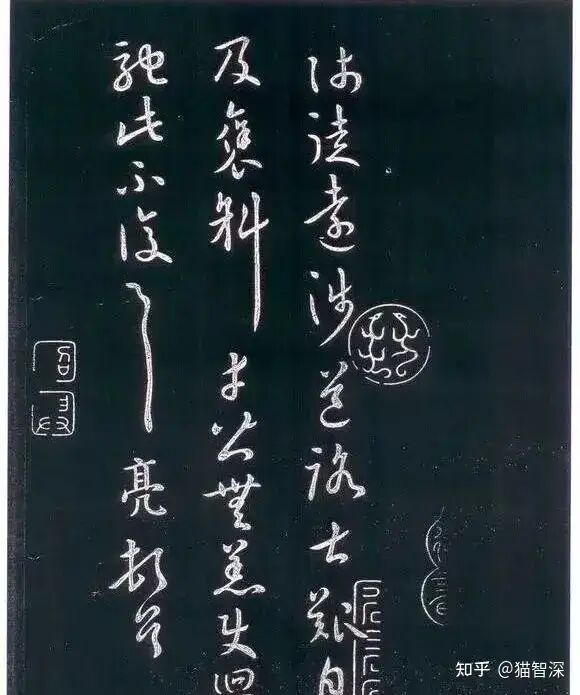 師徒遠涉道路甚艱自
及褒斜幸皆無恙使迴
馳此不復云云亮頓首
知乎 @猫智深